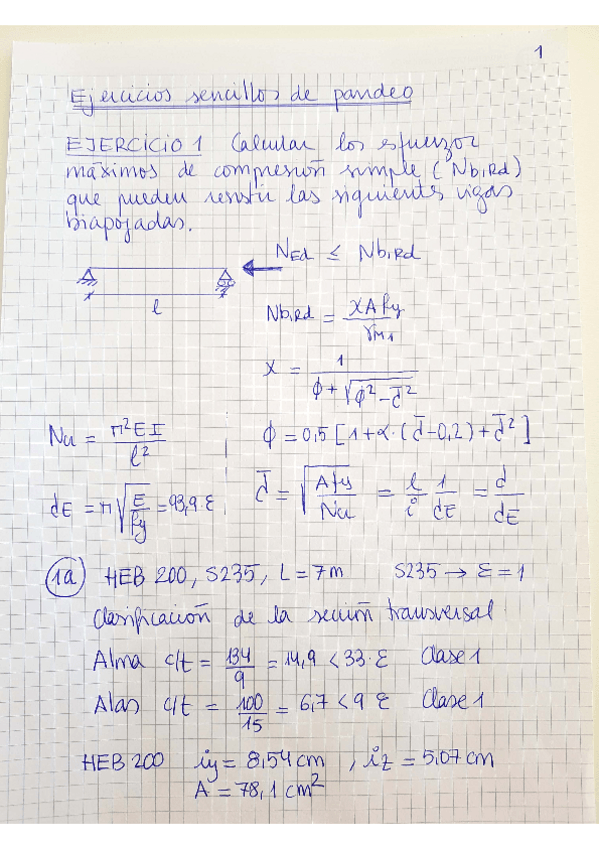 1
Ejercicios sencillos de pandeo
EJERCICIO 1 Calcular los esfuerzos
máximos de compresión simple (Nb,Rd)
que pueden resistir las siguientes vigas
biapoyadas.
NEd ≤ Nb,Rd
l
Nb,Rd = χ A fy / γM1
χ = 1 / (ϕ + √(ϕ² − λ̄²))
Ncr = π² E I / l²
ϕ = 0,5 [1 + α · (λ̄ − 0,2) + λ̄²]
λE = π √(E / fy) = 93,9 · ε
λ̄ = √(A fy / Ncr) = l / i · 1 / λE = λ / λE
1a HEB 200, S235, L = 7m S235 → ε = 1
Clasificación de la sección transversal.
Alma c/t = 134 / 9 = 14,9 < 33 · ε Clase 1
Alas c/t = 100 / 15 = 6,7 < 9 ε Clase 1
HEB 200 iy = 8,54 cm , iz = 5,07 cm
A = 78,1 cm²